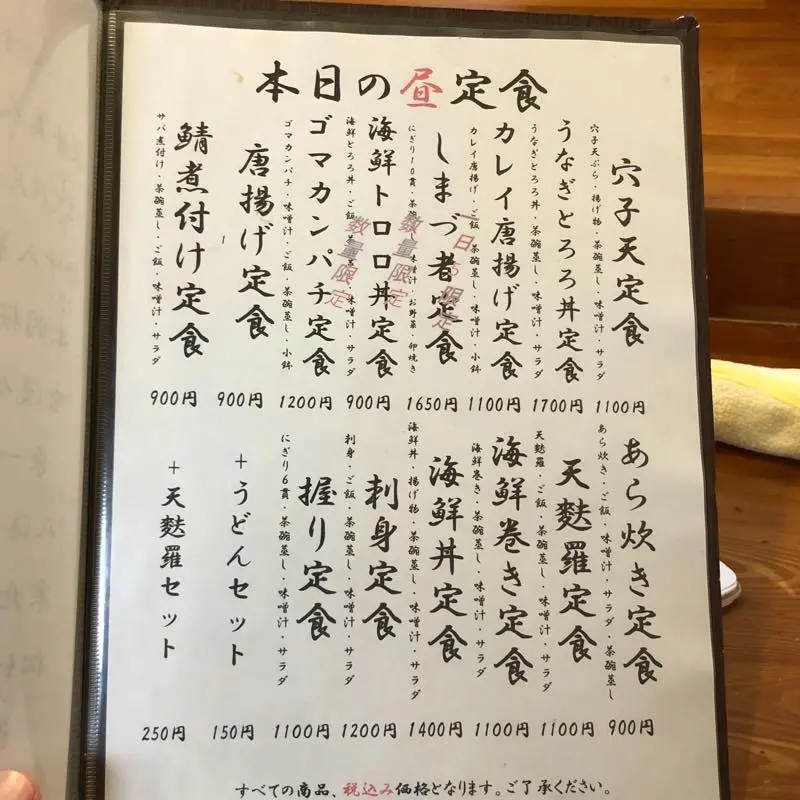 本日の昼定食
穴子天定食
穴子天ぷら・揚げ物・茶碗蒸し・味噌汁・サラダ
1100円
うなぎとろろ丼定食
うなぎとろろ丼・茶碗蒸し・味噌汁・サラダ
1700円
カレイ唐揚げ定食
カレイ唐揚げ・ご飯・茶碗蒸し・味噌汁・小鉢
1100円
しまづ者定食
にぎり10貫・茶碗蒸し・味噌汁・お野菜・卵焼き
1650円
海鮮トロロ丼定食
海鮮とろろ丼・ご飯・茶碗蒸し・味噌汁・サラダ
数量限定
900円
ゴマカンパチ定食
ゴマカンパチ・味噌汁・ご飯・茶碗蒸し・小鉢
数量限定
1200円
唐揚げ定食
900円
鯖煮付け定食
サバ煮付け・茶碗蒸し・ご飯・味噌汁・サラダ
900円
あら炊き定食
あら炊き・ご飯・味噌汁・サラダ・茶碗蒸し
900円
天麩羅定食
天麩羅・ご飯・茶碗蒸し・味噌汁・サラダ
1100円
海鮮巻き定食
海鮮巻き・茶碗蒸し・味噌汁・サラダ
1100円
海鮮丼定食
海鮮丼・揚げ物・茶碗蒸し・味噌汁・サラダ
1400円
刺身定食
刺身・ご飯・茶碗蒸し・味噌汁・サラダ
1200円
握り定食
にぎり6貫・茶碗蒸し・味噌汁・サラダ
1100円
+うどんセット
150円
+天麩羅セット
250円
すべての商品、税込み価格となります。ご了承ください。